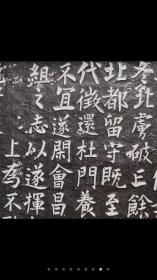 冬北虜破亡餘
北都留守既至
代徵還杜門養
不宜遂閑會昌
組之志以遂揮
上不